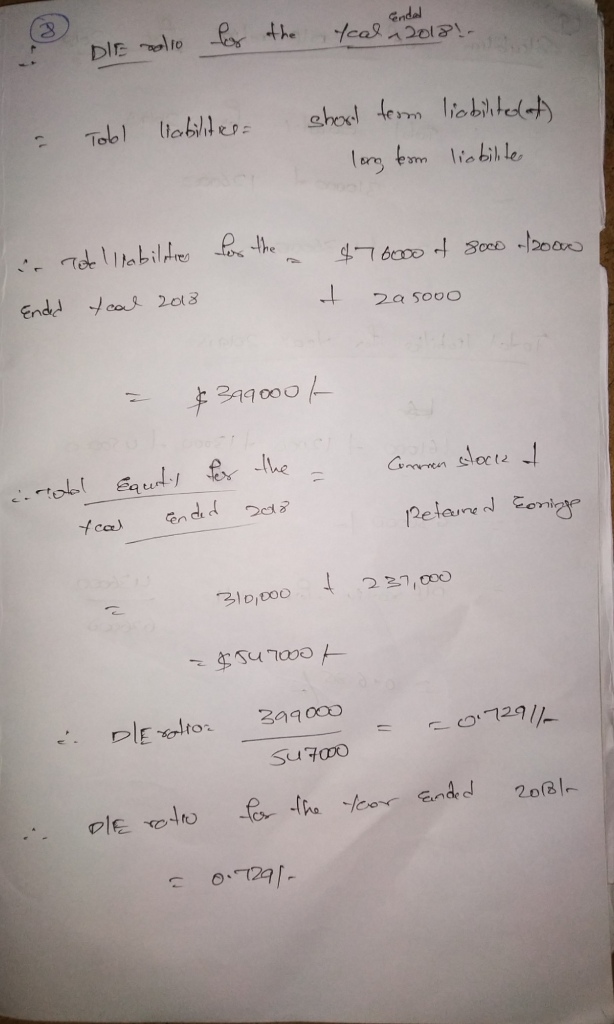 8
D/E ratio for the Year ended 2018:-
= Total liabilities = short term liabilities(+)
long term liabilities
∴ Total liabilities for the = $76000 + 8000 + 20000
Ended Year 2018 + 295000
= $399000/-
∴ Total Equity for the = Common stock +
Year Ended 2018 Retained Earnings
= 310,000 + 237,000
= $547000/-
∴ D/E ratio = 399000 = = 0.729//-
547000
∴ D/E ratio for the Year Ended 2018/-
= 0.729/-